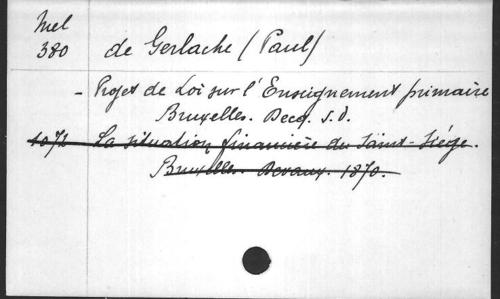 Mel
380
de Gerlache (Paul)
- Projet de Loi sur l'Enseignement primaire
Bruxelles. Decq. s.d.
1072 La situation financière du Saint-Siége.
Bruxelles. Devaux. 1870.